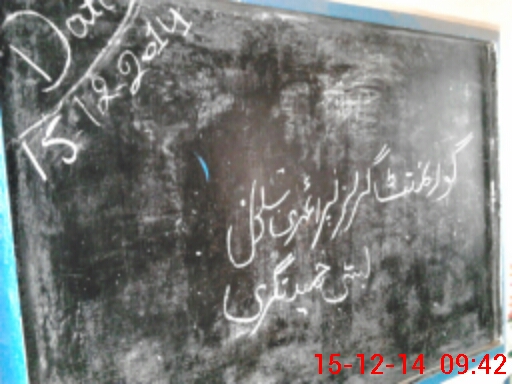 Date
15-12-2014
گورنمنٹ گرلز پرائمری سکول
بستی حمید نگری
15-12-14 09:42